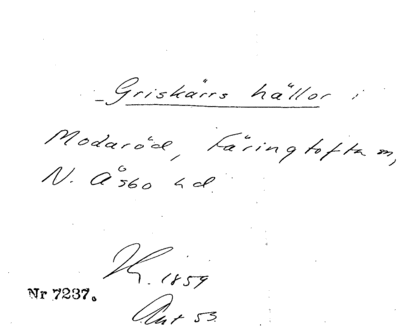 Griskärrs hällor i
Modaröd, Färingtofta sn,
N. Åsbo hd.
1859
Nr 7237.
53